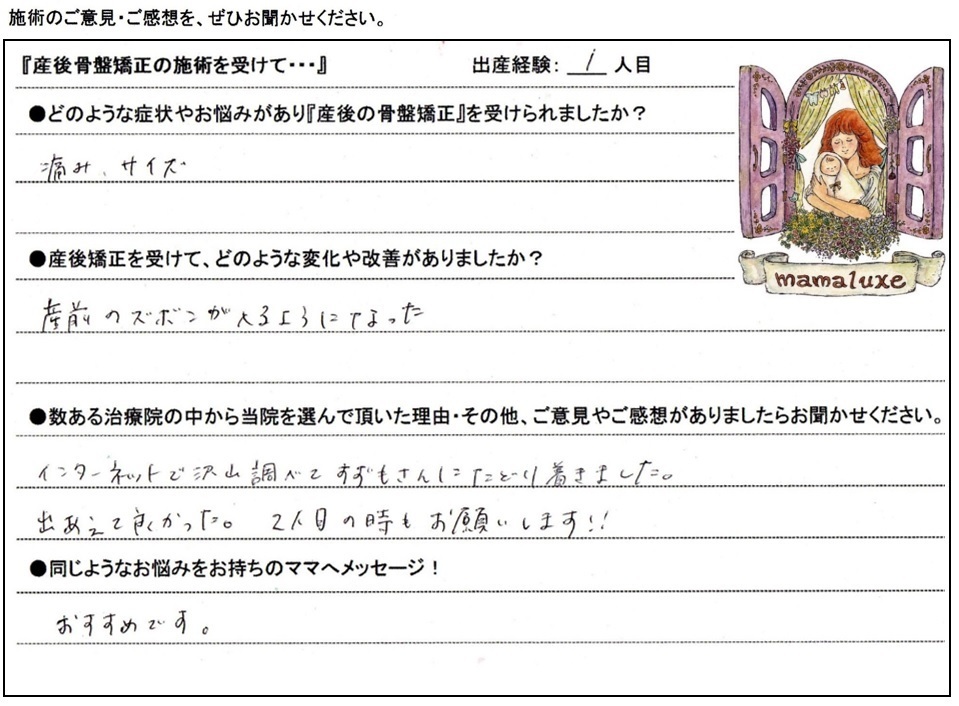 施術のご意見・ご感想を、ぜひお聞かせください。
『産後骨盤矯正の施術を受けて・・・』 出産経験: 1 人目
●どのような症状やお悩みがあり『産後の骨盤矯正』を受けられましたか？
痛み、サイズ
●産後矯正を受けて、どのような変化や改善がありましたか？
産前のズボンが入るようになった
mamaluxe
●数ある治療院の中から当院を選んで頂いた理由・その他、ご意見やご感想がありましたらお聞かせください。
インターネットで沢山調べてすずもさんにたどり着きました。
出あえて良かった。 2人目の時もお願いします!!
●同じようなお悩みをお持ちのママへメッセージ！
おすすめです。